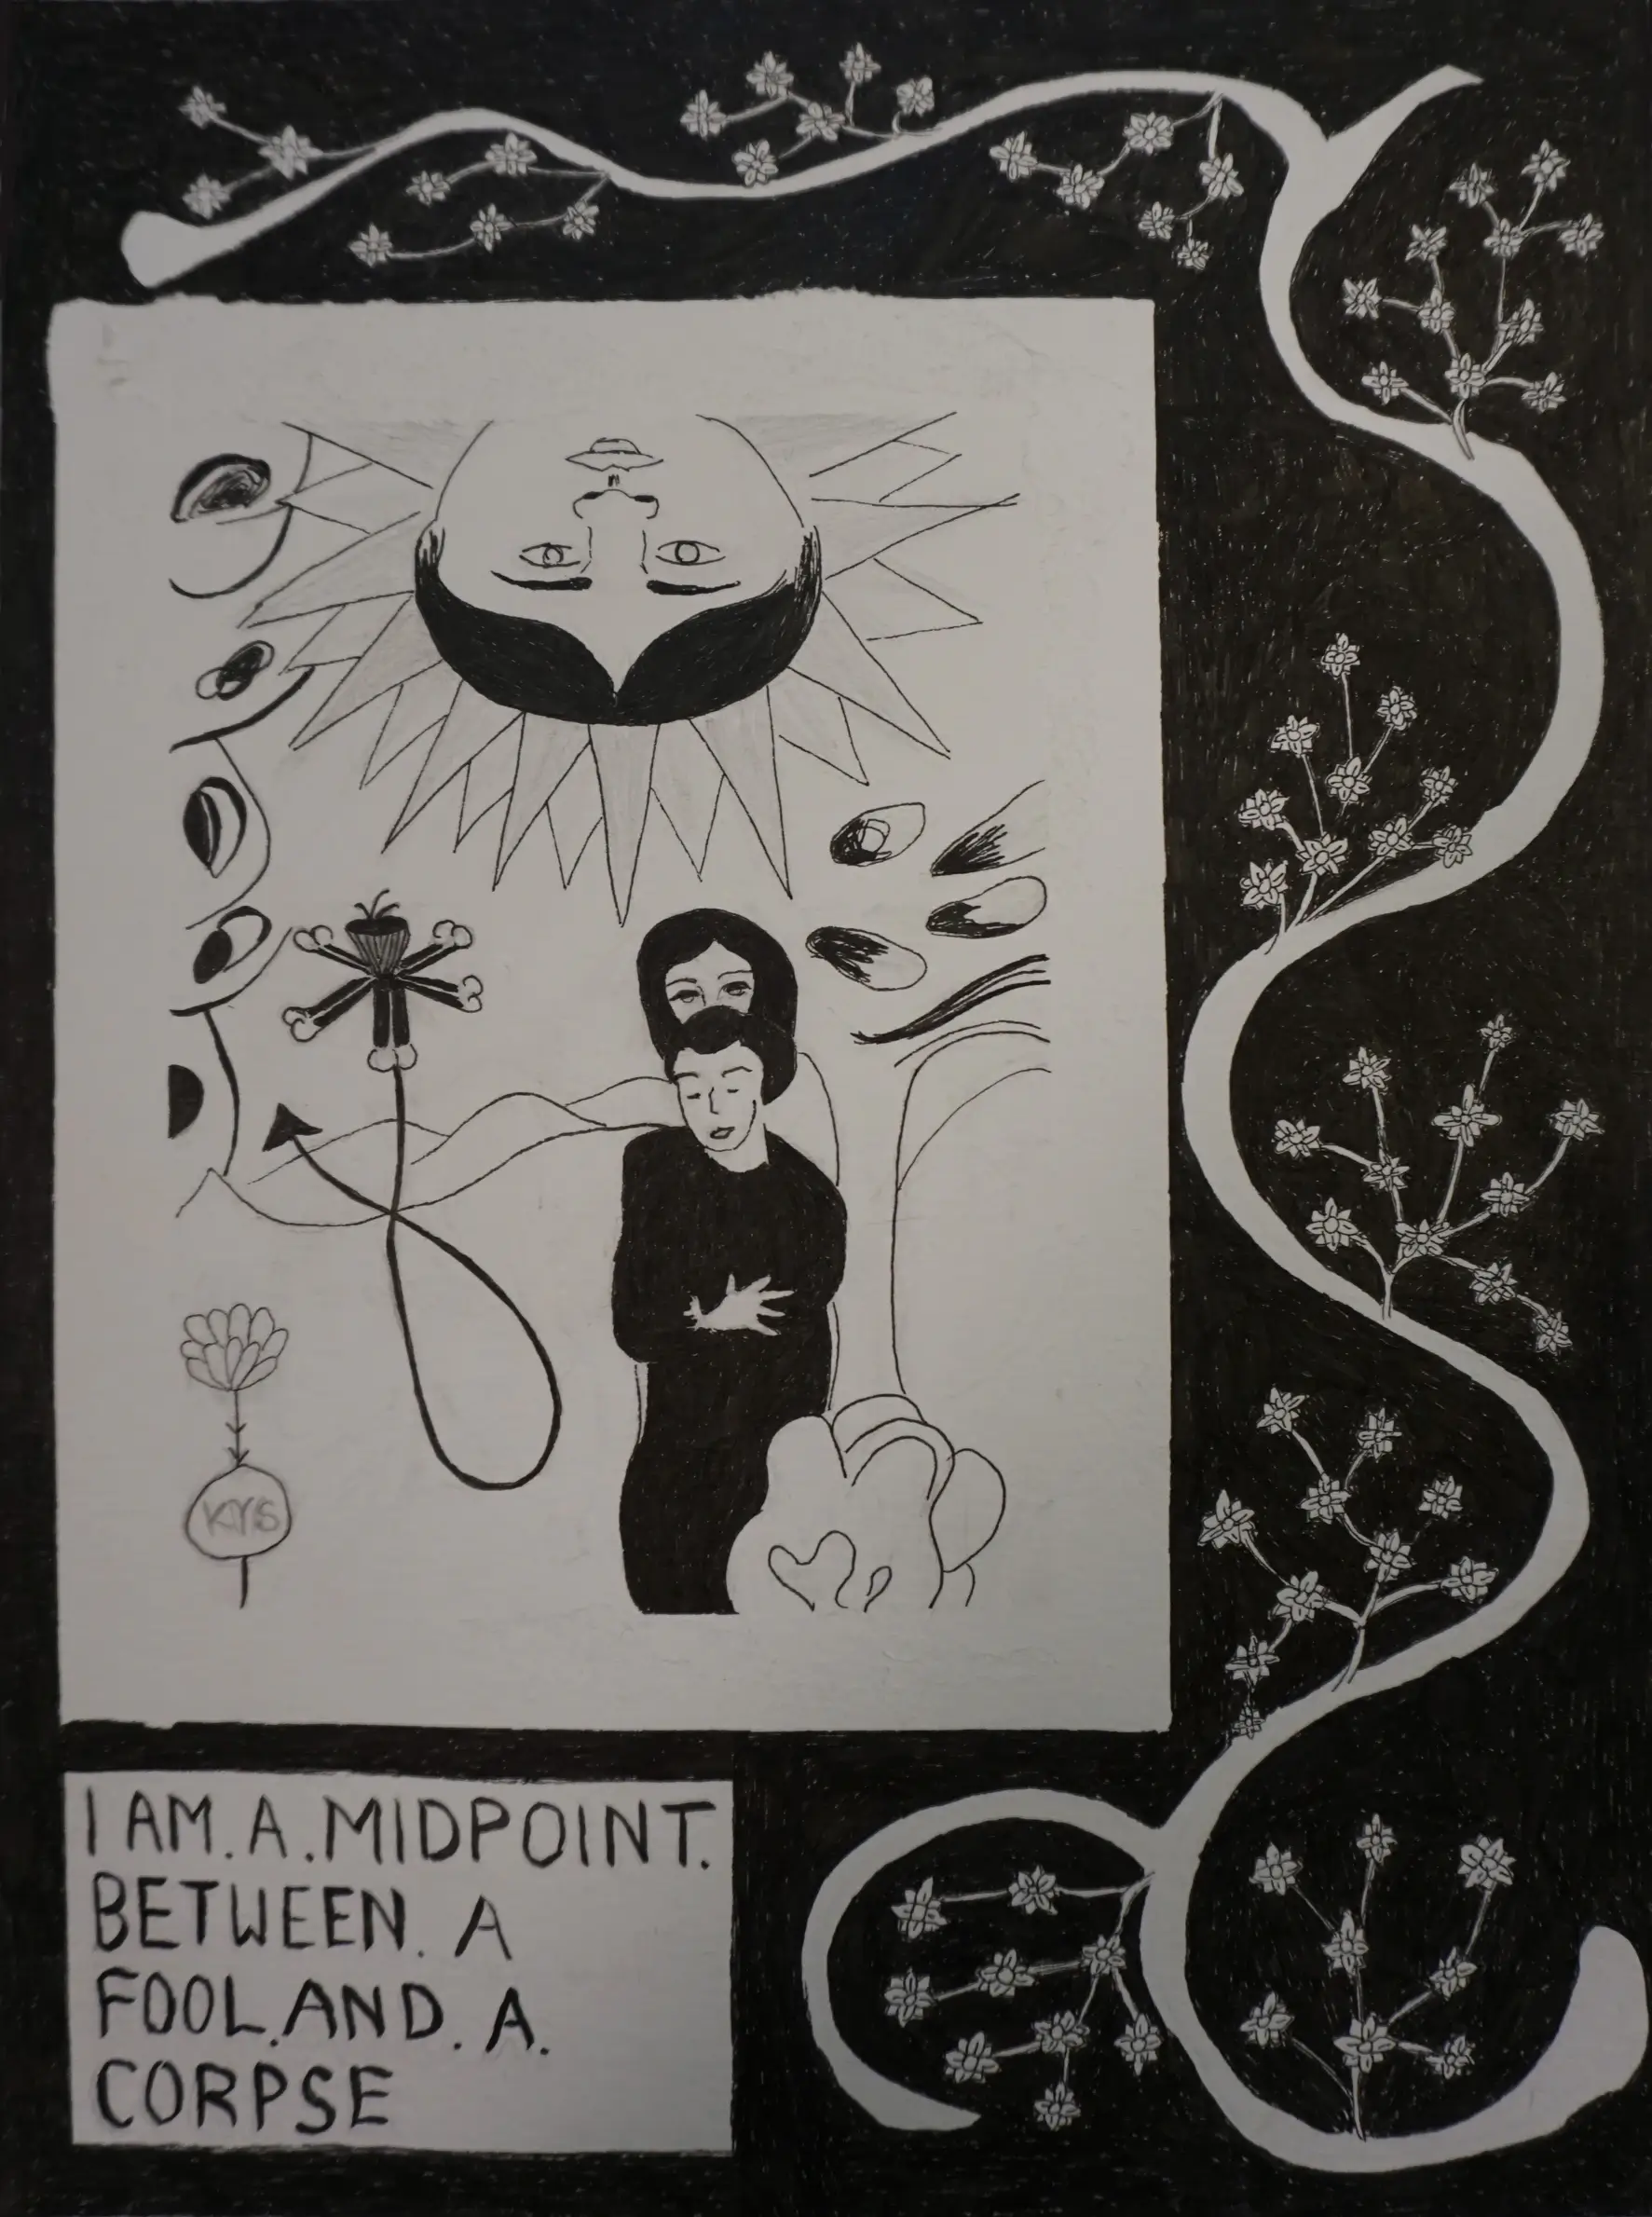 KYS
I AM.A.MIDPOINT.
BETWEEN. A
FOOL.AND. A.
CORPSE